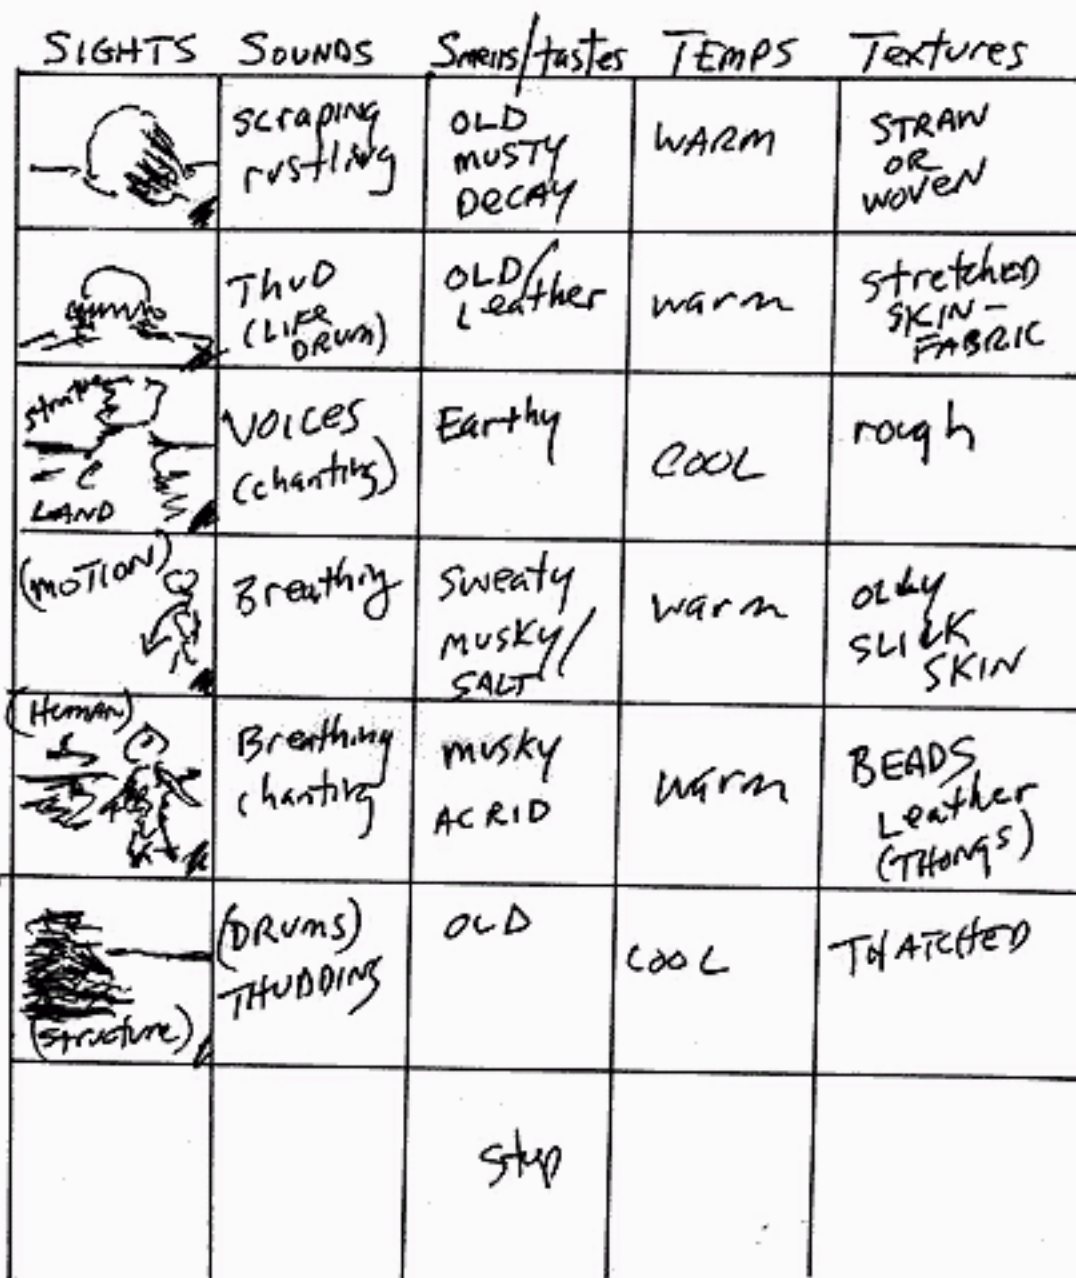 SIGHTS SOUNDS Smells/tastes TEMPS Textures
scraping
rustling
OLD
MUSTY
DECAY
WARM
STRAW
OR
WOVEN
Thud
(LIKE
DRUM)
OLD/
Leather
warm
stretched
SKIN-
FABRIC
LAND
VOICES
(chanting)
Earthy
COOL
rough
(MOTION)
Breathing
Sweaty
MUSKY/
SALT
warm
OILY
SLICK
SKIN
(HUMAN)
Breathing
chanting
musky
ACRID
warm
BEADS
Leather
(THONGS)
(structure)
(DRUMS)
THUDDING
OLD
COOL
THATCHED
Stop